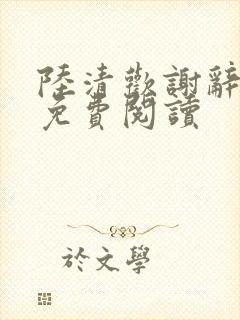 陸清歡謝辭
免費閱讀
於文學